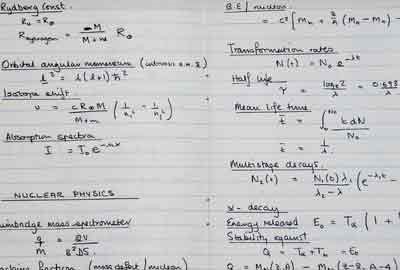 Rydberg Const.
R∞ = R∞
R hydrogen = M / (M + m) R∞
Orbital angular momentum
l² = l(l+1) ħ²
Isotope shift.
ν = c R∞ M / (M+m) (1/n₁² - 1/n₂²)
Absorption spectra
I = I₀ e^-nαx
NUCLEAR PHYSICS
mass spectrometer
q/m = 2V / B²DS
fraction (mass defect / nucleon)
B.E / nucleon
= c² [Mn + Z/A (MH - Mn) -
Transformation rates.
N(t) = N₀ e^-λt
Half life
τ = loge 2 / λ = 0.693 / λ
Mean life time
t̄ = ∫₀^N₀ t dN / N₀
t̄ = 1/λ
Multistage decays.
N₂(t) = N₁(0) λ₁ / (λ₂ - λ₁) (e^-λ₁t -
α - decay
Energy released E₀ = Tα (1 +
Stability against
Q = Tα + Tb = E₀
Q = Mn(Z,A) - Mn(Z-2, A-4)